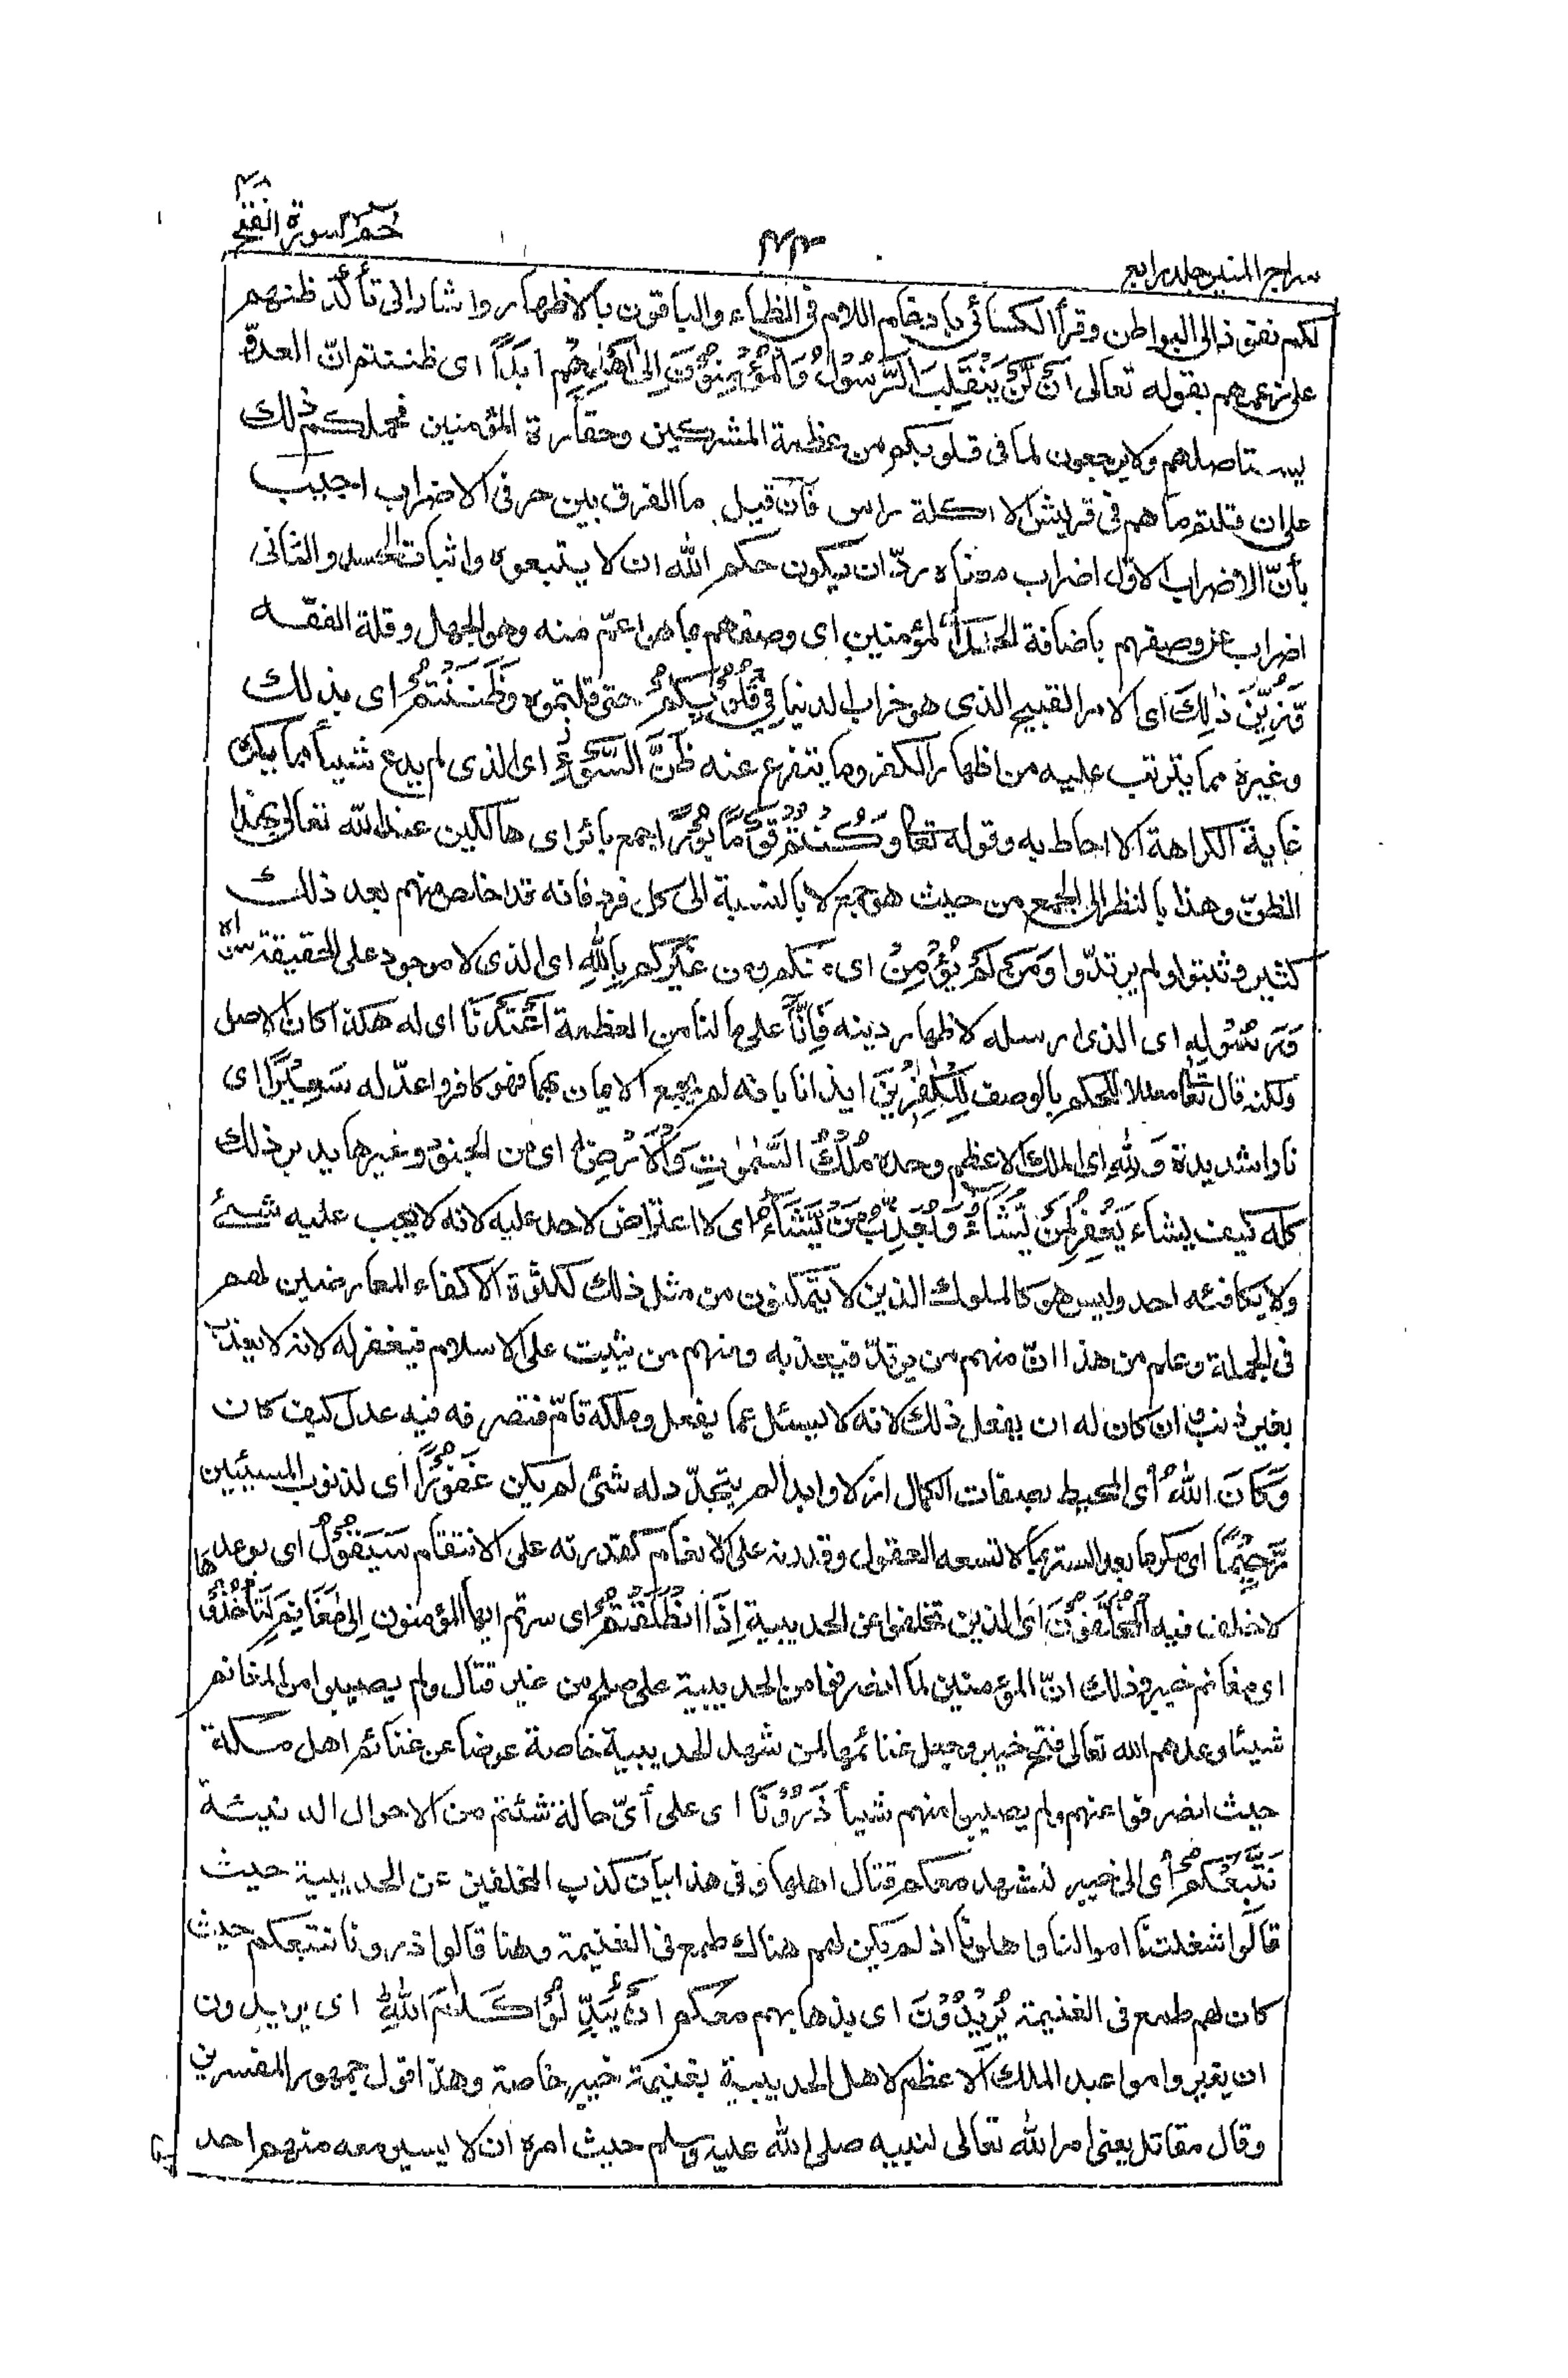 سراج المنير جلد رابع
۴۴
حم سورة الفتح
۴۸
لكم نفوذ الى البواطن وقرأ الكسائي بادغام اللام في الظاء والباقون بالاظهار واشار الى تأكّد ظنهم
على زعمهم بقوله تعالى اَنْ لَّنْ يَّنْقَلِبَ الرَّسُوْلُ وَالْمُؤْمِنُوْنَ اِلٰى اَهْلِيْهِمْ اَبَدًا اى ظننتم انّ العدوّ
يستاصلهم ولا يرجعون لما فى قلوبكم من عظمة المشركين وحقارة المؤمنين فحملكم ذلك
على ان قلتم ما هم فى قريش الا اكلة راس فان قيل ما الفرق بين حرفى الاضراب اجيب
بأنّ الاضراب الاول اضراب معناه ردّ ان يكون حكم الله ان لا يتبعوه واثبات الحسد والثانى
اضراب عن وصفهم باضافة الحسد الى المؤمنين اى وصفهم بما هو اعمّ منه وهو الجهل وقلة الفقه
وَّزُيِّنَ ذٰلِكَ اى الامر القبيح الذى هو خراب الدنيا فِيْ قُلُوْبِكُمْ حتى قلتموه وَظَنَنْتُمْ اى بذلك
وغيره مما يترتب عليه من اظهار الكفر وما يتفرع عنه ظَنَّ السَّوْءِ اى الذى لم يدع شيأ مما يكره
غاية الكراهة الا احاط به وقوله تعا وَكُنْتُمْ قَوْمًا بُوْرًا جمع بائر اى هالكين عند الله تعالى بهذا
الظنّ وهذا بالنظر الى الجمع من حيث هو جمع لا بالنسبة الى كل فرد فانه قد اخلص منهم بعد ذلك
كثير وثبتوا ولم يرتدّوا وَمَنْ لَّمْ يُؤْمِنْ اى منكم ومن غيركم بِاللّٰهِ اى الذى لا موجود على الحقيقة سواه
وَرَسُوْلِهٖ اى الذى ارسله لاظهار دينه فَاِنَّا على ما لنا من العظمة اَعْتَدْنَا اى له هكذا كان الاصل
ولكنه قال تعا معللا للحكم بالوصف لِلْكٰفِرِيْنَ ايذانا بانه لم يجمع الايمان بهما فهو كافر واعدّ له سَعِيْرًا اى
نارا شديدة وَلِلّٰهِ اى الملك الاعظم وحده مُلْكُ السَّمٰوٰتِ وَالْاَرْضِ اى من الجنود وغيرها يدبر ذلك
كله كيف يشاء يَغْفِرُ لِمَنْ يَّشَآءُ وَيُعَذِّبُ مَنْ يَّشَآءُ اى لا اعتراض لاحد عليه لانه لا يجب عليه شئ
ولا يكافئه احد وليس هو كالملوك الذين لا يتمكنون من مثل ذلك لكثرة الاكفاء المعارضين لهم
فى الجملة وعلم من هذا انّ منهم من يرتدّ فيعذبه ومنهم من يثبت على الاسلام فيغفر له لانه لا يعذب
بغير ذنب وان كان له ان يفعل ذلك لانه لا يسئل عما يفعل وملكه تامّ فتصرفه فيه عدل كيف كان
وَكَانَ اللّٰهُ اى المحيط بصفات الكمال ازلا وابدا لم يتجدّد له شئ لم يكن غَفُوْرًا اى لذنوب المسيئين
رَّحِيْمًا اى مكرما بعد الستر بما لا تسعه العقول وقدرته على الانعام كقدرته على الانتقام سَيَقُوْلُ اى بوعد ها
لا خلف فيه الْمُخَلَّفُوْنَ اى الذين تخلفوا عن الحديبية اِذَا انْطَلَقْتُمْ اى سرتم ايها المؤمنون اِلٰى مَغَانِمَ لِتَاْخُذُوْ
اى مغانم خيبر وذلك انّ المؤمنين لما انصرفوا من الحديبية على صلح من غير قتال ولم يصيبوا من المغانم
شيئا وعدهم الله تعالى فتح خيبر وجعل غنائمها لمن شهد الحديبية خاصة عوضا عن غنائم اهل مكة
حيث انصرفوا عنهم ولم يصيبوا منهم شيأ ذَرُوْنَا اى على أىّ حالة شئتم من الاحوال الدنيئة
نَتَّبِعْكُمْ اى الى خيبر لنشهد معكم قتال اهلها وفى هذا بيان كذب المخلفين عن الحديبية حيث
قالوا شغلتنا اموالنا واهلونا اذ لم يكن لهم هناك طمع فى الغنيمة وهنا قالوا ذرونا نتبعكم حيث
كان لهم طمع فى الغنيمة يُرِيْدُوْنَ اى بذهابهم معكم اَنْ يُّبَدِّلُوْا كَلٰمَ اللّٰهِ اى يريدون
ان يغيروا مواعيد الملك الاعظم لاهل الحديبية بغنيمة خيبر خاصة وهذا قول جمهور المفسرين
وقال مقاتل يعنى امر الله تعالى لنبيه صلى الله عليه وسلم حيث امره ان لا يسير معه منهم احد